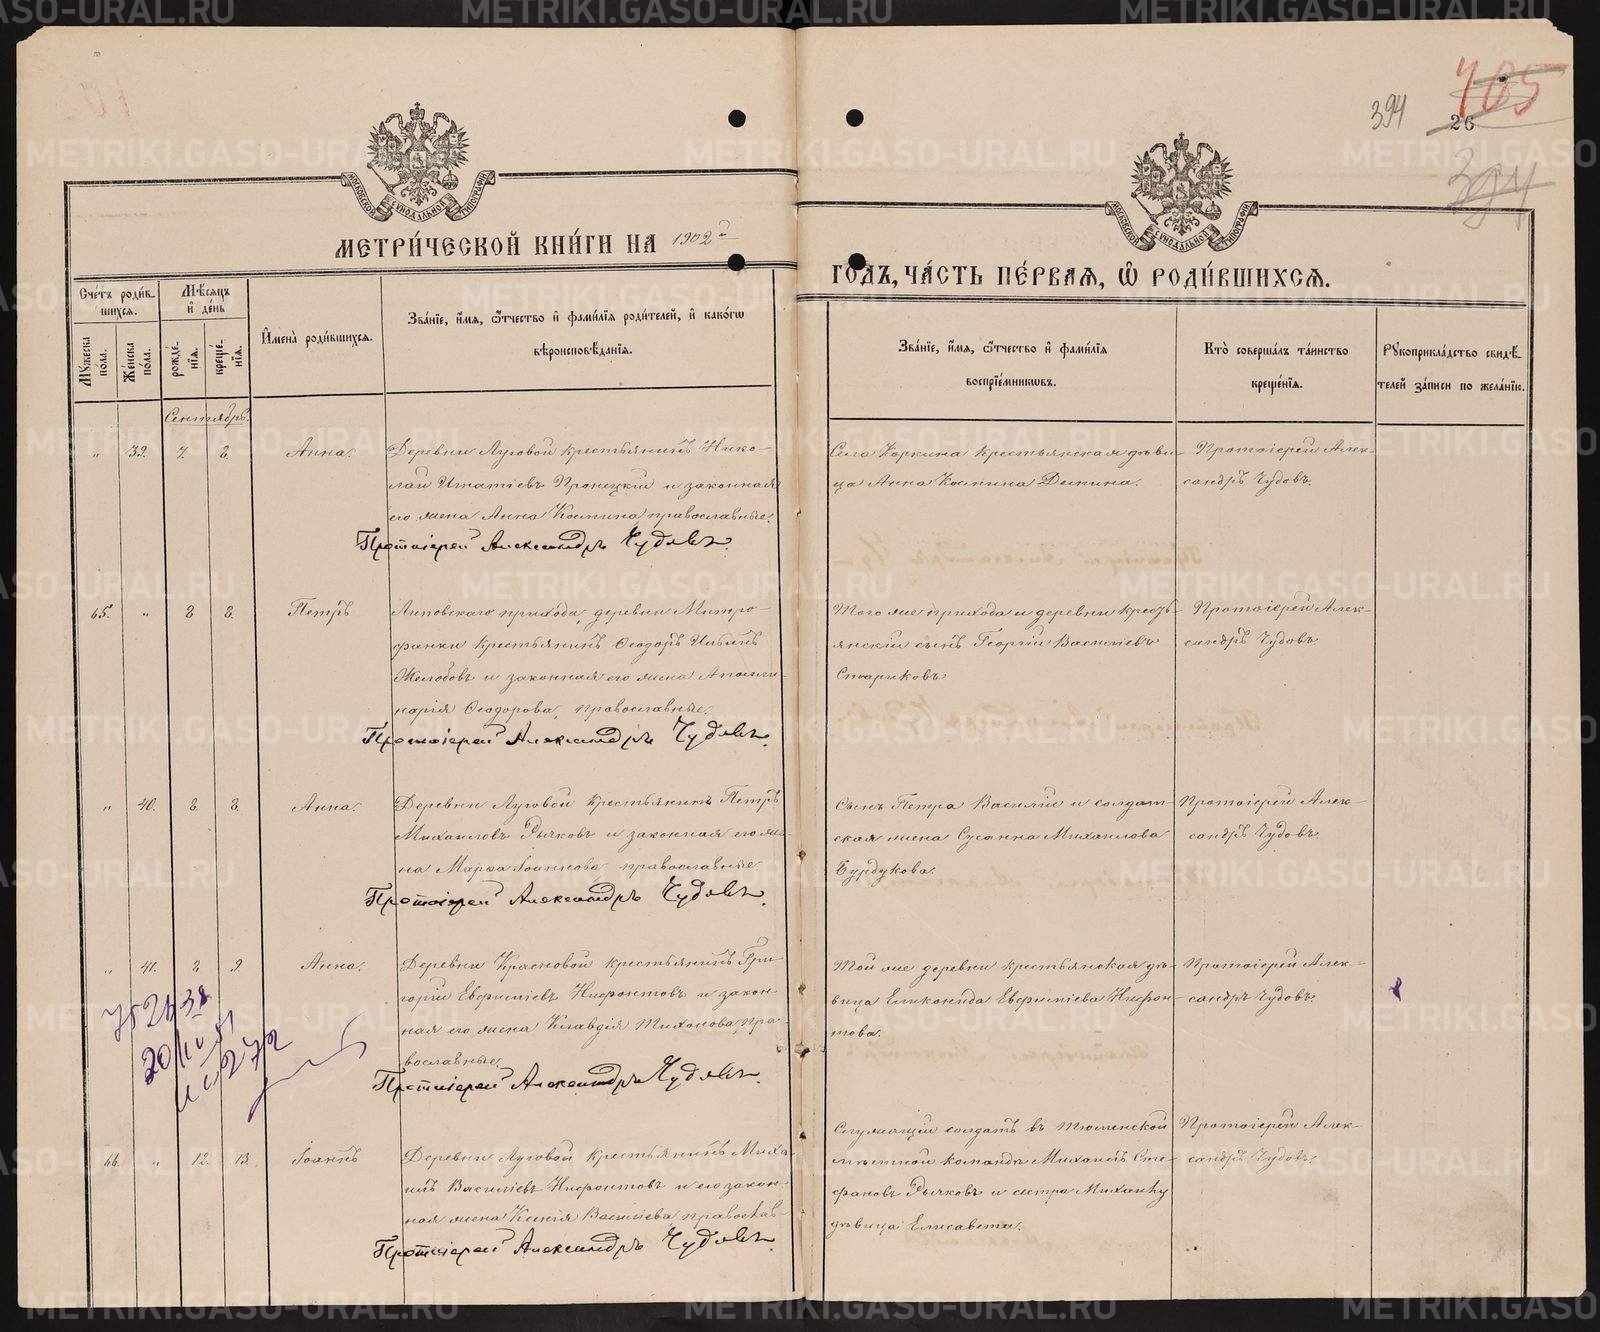 394
405
26
394
МОСКОВСКОЙ СѴНОДАЛЬНОЙ ТИПОГРАФІИ
МОСКОВСКОЙ СѴНОДАЛЬНОЙ ТИПОГРАФІИ
МЕТРИ́ЧЕСКОЙ КНИ́ГИ НА 1902й
ГО́ДЪ, ЧА́СТЬ ПЕ́РВАЯ, Ѡ РОДИ́ВШИХСЯ.
Сче́тъ роди́в-
шихся.
Му́жеска по́ла.
Же́нска по́ла.
Мѣ́сяцъ
и де́нь
рожде́-
нїя.
креще́-
нїя.
И́мена̀ роди́вшихся.
Зва́нїе, и́мя, ѻ҆́тчество и фами́лїя роди́телей, и како́гѡ
вѣроисповѣ́данїя.
Зва́нїе, и́мя, ѻ҆́тчество и фами́лїя
воспрїе́мникѡвъ.
Кто̀ соверша́лъ та́инство
креще́нїя.
Рꙋкоприкла́дство свидѣ́-
телей за́писи по жела́нїю.
Сентябрь.
„ 39. 7. 8. Анна.
Деревни Луговой крестьянинъ Нико-
лай Игнатіевъ Пронецкій и законная
его жена Анна Космина, православные.
Протоіерей Александръ Чудовъ.
Села Коркина крестьянская дѣви-
ца Анна Космина Демина.
Протоіерей Алек-
сандръ Чудовъ.
65. „ 8 8. Петръ
Липовскаго прихода, деревни Митро-
фанки крестьянинъ Ѳеодоръ
Желобовъ и законная его жена Аполли-
нарія Ѳеодорова, православные.
Протоіерей Александръ Чудовъ.
Того же прихода и деревни кресть-
янскій сынъ Георгій Василіевъ
Стариковъ
Протоіерей Алек-
сандръ Чудовъ
„ 40. 8. 8. Анна.
Деревни Луговой крестьянинъ Петръ
Михаиловъ Рычковъ и законная его же-
на Марѳа Іоаннова, православные.
Протоіерей Александръ Чудовъ.
Сынъ Петра Василій и солдат-
ская жена Сусанна Михаилова
Бурдукова.
Протоіерей Алек-
сандръ Чудовъ.
„ 41. 8 9. Анна.
Деревни Красновой крестьянинъ Гри-
горій Евфиміевъ Нифонтовъ и закон-
ная его жена Клавдія Тихонова, пра-
вославные.
Протоіерей Александръ Чудовъ.
Той же деревни крестьянская дѣ-
вица Еликонида Евфиміева Нифон-
това.
Протоіерей Алек-
сандръ Чудовъ.
66. „ 12. 13. Іоаннъ
Деревни Луговой крестьянинъ Миха-
илъ Василіевъ Нифонтовъ и его закон-
ная жена Ксенія Василіева, православ-
Протоіерей Александръ Чудовъ.
Служащій солдатъ въ Тюменской
мѣстной командѣ Михаилъ Сте-
фановъ Рычковъ и сестра Михаилу
дѣвица Елисавета.
Протоіерей Алек-
сандръ Чудовъ.
METRIKI.GASO-URAL.RU